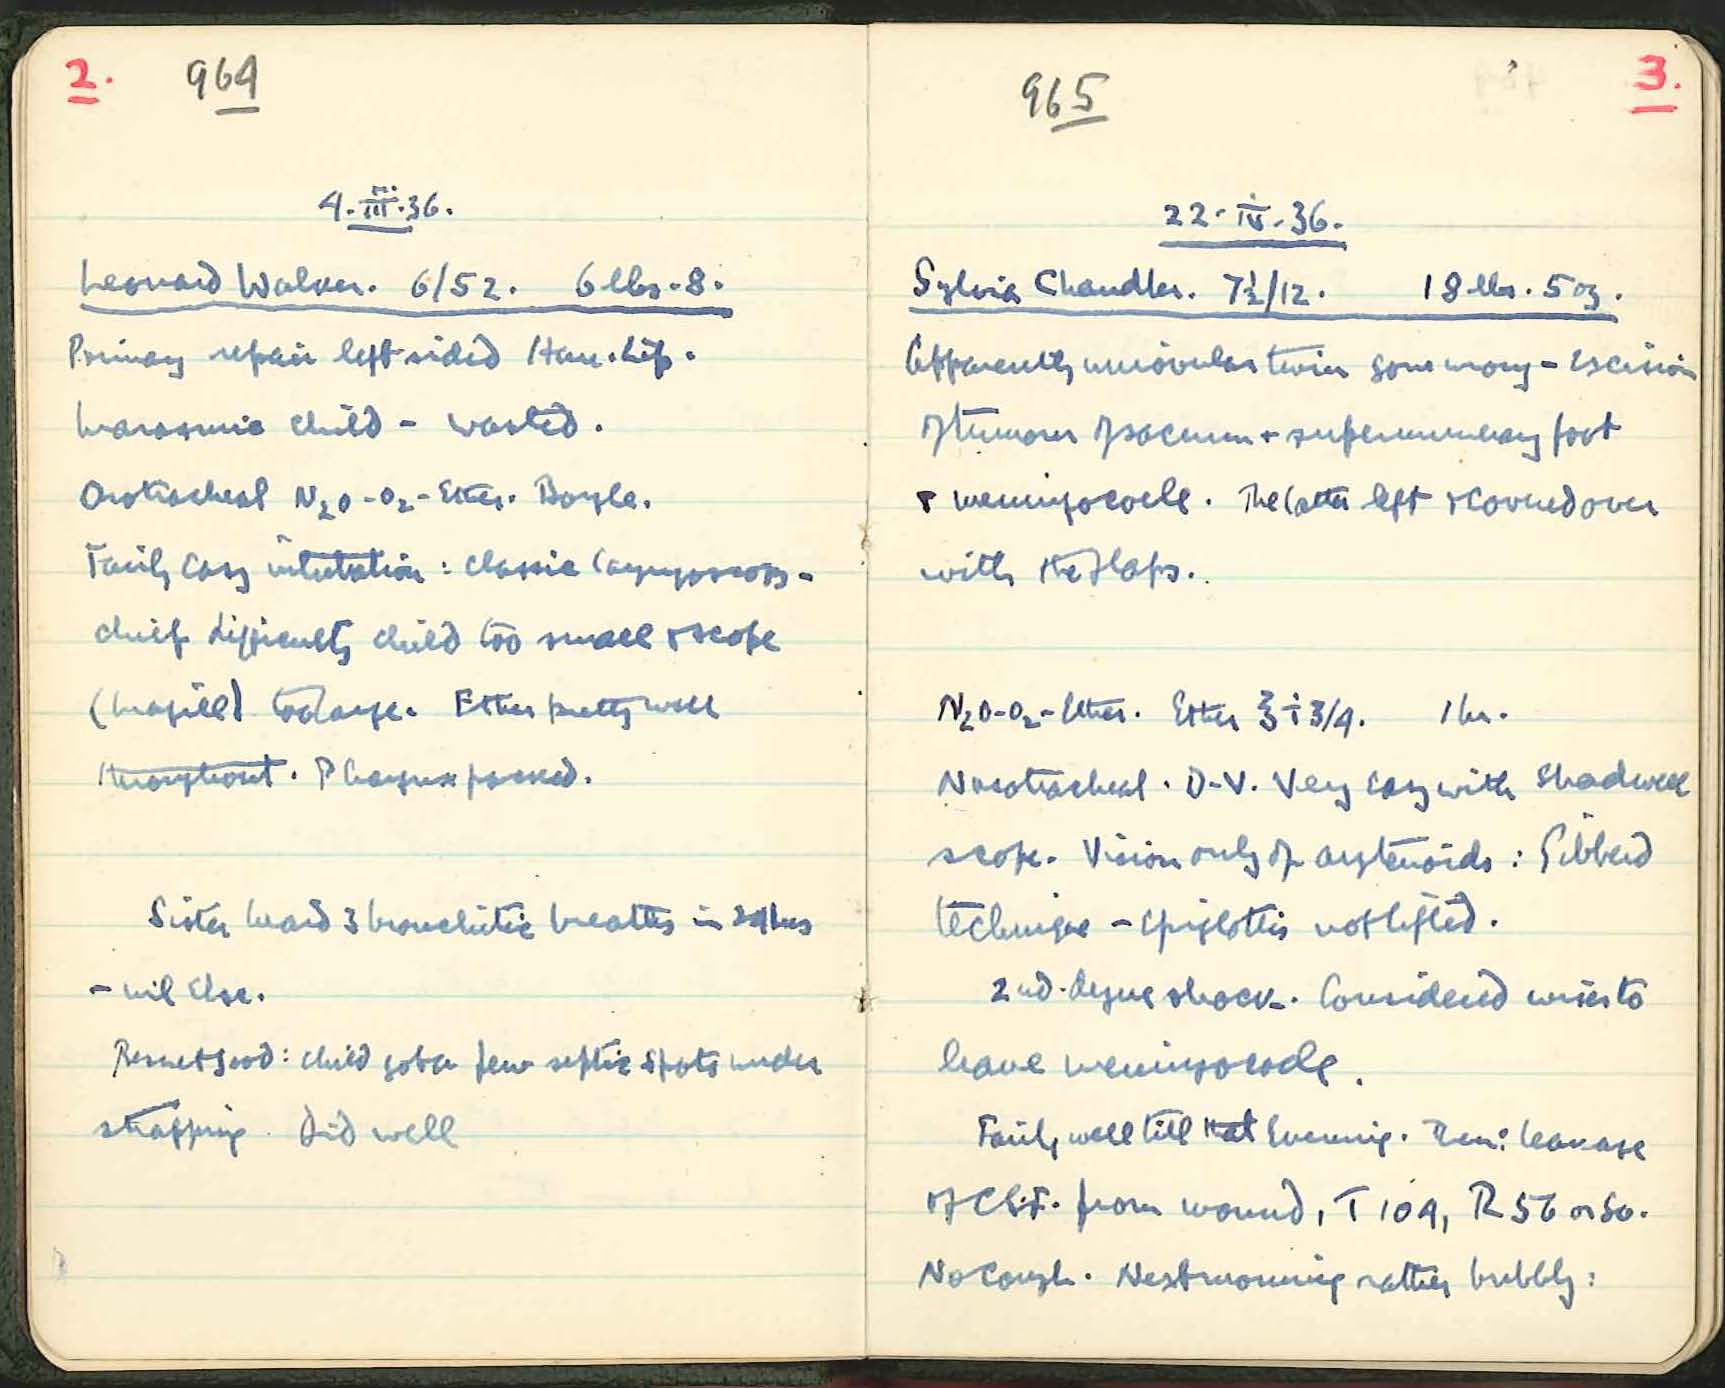 2.
964
4.III.36.
Leonard Walker. 6/52. 6 lbs. 8.
Primary repair left sided Hare. Lip.
Marasmic child - wasted.
Orotracheal N2O-O2-Ether. Boyle.
Fairly easy intubation: classic laryngoscopy -
chief difficulty child too small & scope
(Magill) too large. Ether pretty well
throughout. Pharynx packed.
Sister heard 3 bronchitic breaths in 24 hrs
- nil else.
Result good: child got a few septic spots under
strapping. Did well
3.
965
22.IV.36.
Sylvia Chandler. 7½/12. 18 lbs. 5 oz.
Apparently uniovular twin gone wrong - Excision
of tumour of sacrum & supernumerary foot
& meningocoele. The latter left & covered over
with the flaps.
N2O-O2-Ether. Ether ℥i 3/4. 1 hr.
Nasotracheal. D-V. Very easy with Shadwell
scope. Vision only of arytenoids: Gibberd
technique - Epiglottis not lifted.
2nd. degree shock. Considered wiser to
leave meningocoele.
Fairly well till that Evening. Then: leakage
of C.S.F. from wound, T 104, R 56 or 60.
No cough. Next morning rather bubbly: